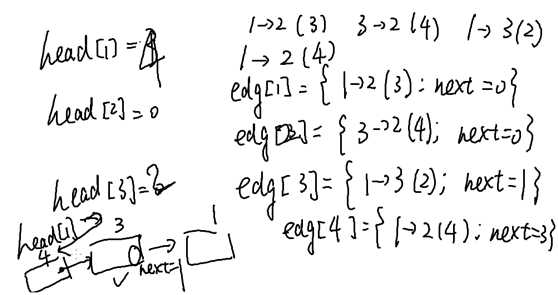 1→2 (3)   3→2 (4)   1→3(2)
1→2 (4)
head[1]=4
edg[1]={1→2(3); next=0}
head[2]=0
edg[2]={3→2(4); next=0}
head[3]=2
edg[3]={1→3(2); next=1}
edg[4]={1→2(4); next=3}
head[1]
4   3   1
next=1